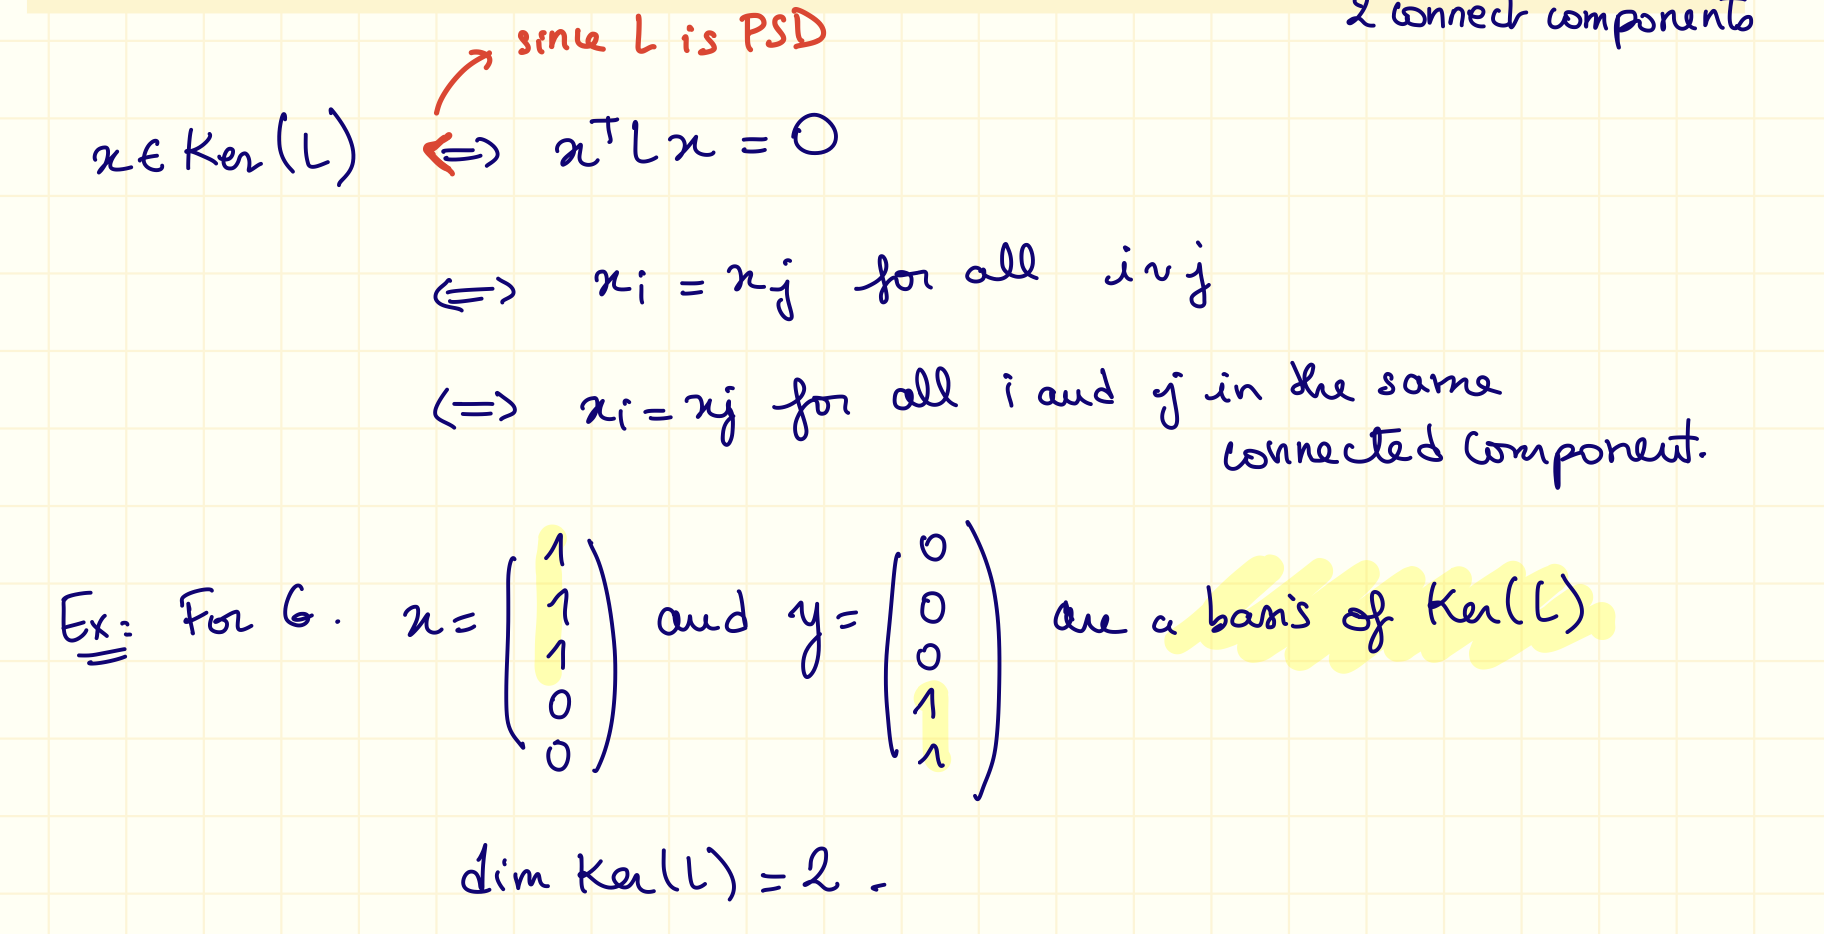 2 connect components
since L is PSD
x ∈ Ker(L) ⟺ xᵀLx = 0
⟺ xi = xj for all i ~ j
⟺ xi = xj for all i and j in the same
connected component.
Ex: For G. x = (1 1 1 0 0) and y = (0 0 0 1 1) are a basis of Ker(L)
dim Ker(L) = 2.